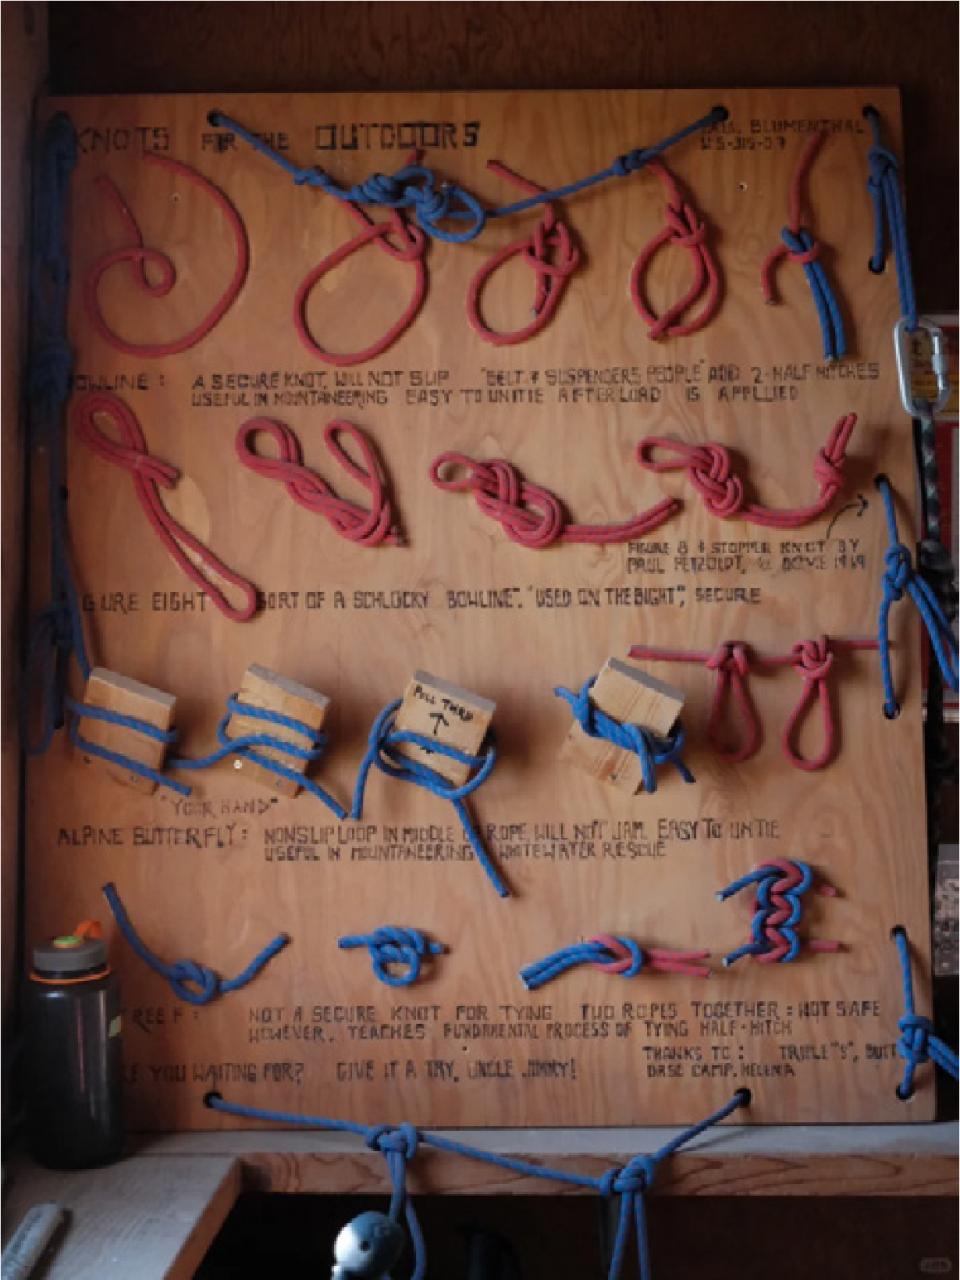 KNOTS FOR THE OUTDOORS
BLUMENTHAL
BOWLINE: A SECURE KNOT, WILL NOT SLIP "BELT & SUSPENDERS PEOPLE" ADD 2-HALF HITCHES
USEFUL IN MOUNTAINEERING EASY TO UNTIE AFTER LOAD IS APPLLIED
FIGURE 8 & STOPPER KNOT BY
PAUL PETZOLDT, 1969
GURE EIGHT SORT OF A SCHLOCKY BOWLINE", "USED ON THE BIGHT", SECURE
PULL THRU
"YOUR HAND"
ALPINE BUTTERFLY: NONSLIP LOOP IN MIDDLE OF ROPE, WILL NOT JAM. EASY TO UNTIE
USEFUL IN MOUNTAINEERING WHITEWATER RESCUE
REEF: NOT A SECURE KNOT FOR TYING TWO ROPES TOGETHER: NOT SAFE
HOWEVER, TEACHES FUNDAMENTAL PROCESS OF TYING HALF-HITCH
THANKS TO: TRIPLE "S", BUTT
BASE CAMP, HELENA
YOU WAITING FOR? GIVE IT A TRY, UNCLE JIMMY!